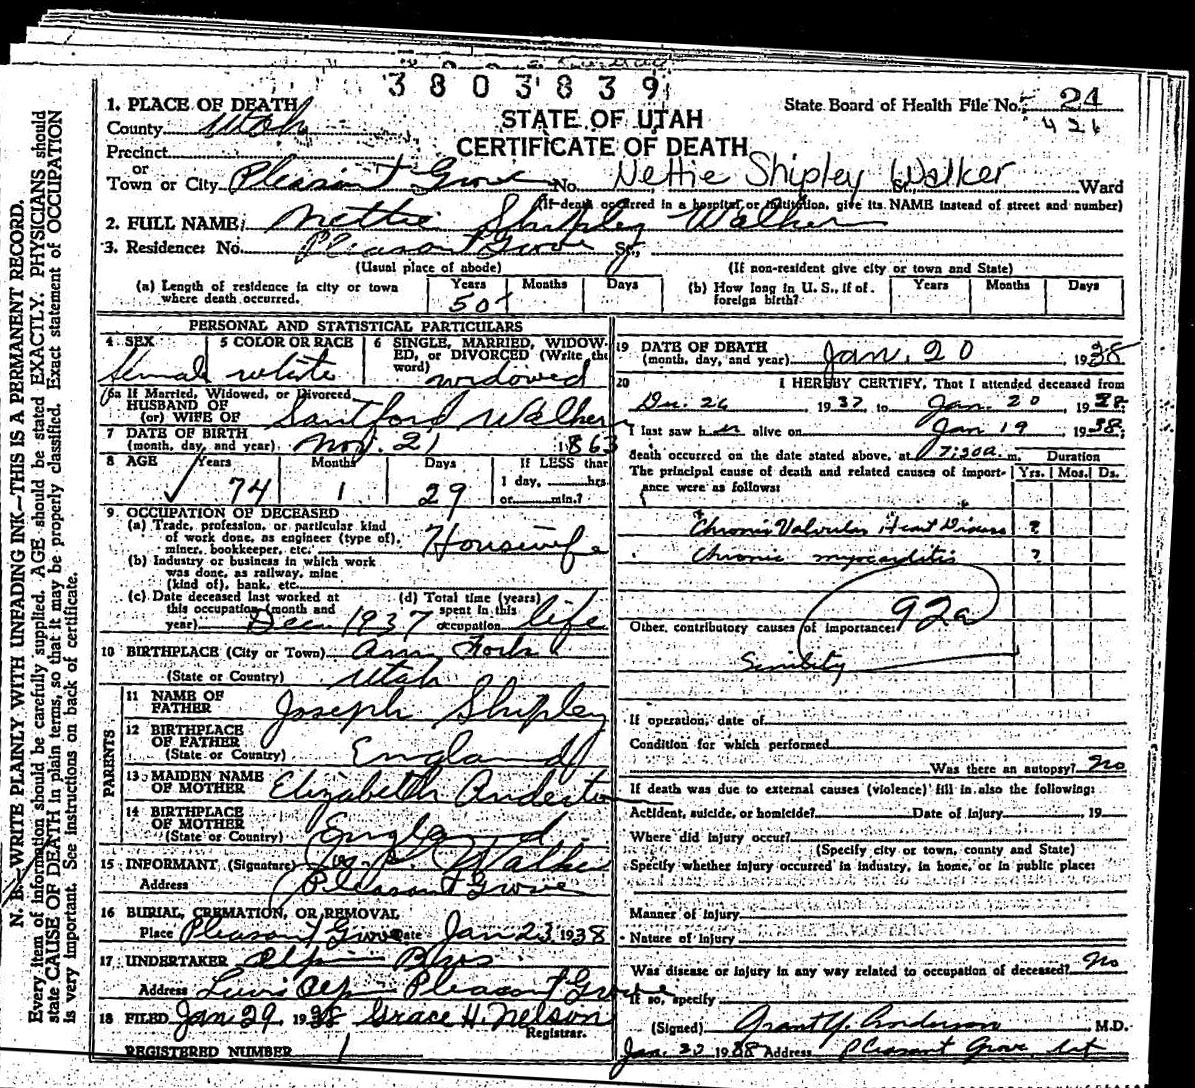 3803839
STATE OF UTAH
CERTIFICATE OF DEATH
State Board of Health File No. 24
426
1. PLACE OF DEATH
County Utah
Precinct
or
Town or City Pleasant Grove No. Nettie Shipley St. Walker Ward
(If death occurred in a hospital or institution, give its NAME instead of street and number)
2. FULL NAME: Nettie Shipley Walker
3. Residence: No. Pleasant Grove St.,
(Usual place of abode) (If non-resident give city or town and State)
(a) Length of residence in city or town where death occurred. Years Months Days
50+
(b) How long in U. S., if of foreign birth? Years Months Days
PERSONAL AND STATISTICAL PARTICULARS
4 SEX 5 COLOR OR RACE 6 SINGLE, MARRIED, WIDOW-
ED, or DIVORCED (Write the
word)
female white widowed
6a If Married, Widowed, or Divorced
HUSBAND OF
(or) WIFE OF Santford Walker
7 DATE OF BIRTH
(month, day, and year) Nov. 21 1863
8 AGE Years Months Days If LESS than
1 day, hrs
or min.?
74 1 29
9 OCCUPATION OF DECEASED
(a) Trade, profession, or particular kind
of work done, as engineer (type of),
miner, bookkeeper, etc. Housewife
(b) Industry or business in which work
was done, as railway, mine
(kind of), bank, etc.
(c) Date deceased last worked at
this occupation (month and
year) Dec 1937
(d) Total time (years)
spent in this
occupation life
10 BIRTHPLACE (City or Town) Am Fork
(State or Country) Utah
PARENTS
11 NAME OF
FATHER Joseph Shipley
12 BIRTHPLACE
OF FATHER
(State or Country) England
13 MAIDEN NAME
OF MOTHER Elizabeth Anderton
14 BIRTHPLACE
OF MOTHER
(State or Country) England
15 INFORMANT (Signature) Walker
Address Pleasant Grove
16 BURIAL, CREMATION, OR REMOVAL
Place Pleasant Grove Date Jan 23 1938
17 UNDERTAKER Olpin Bros
Address Pleasant Grove
18 FILED Jan. 29 1938 Grace H. Nelson
Registrar.
REGISTERED NUMBER 1
19 DATE OF DEATH
(month, day, and year) Jan. 20 1938
20 I HEREBY CERTIFY, That I attended deceased from
Dec. 26 1937 to Jan. 20 1938
I last saw her alive on Jan 19 1938,
death occurred on the date stated above, at 7:30 a. m. Duration
The principal cause of death and related causes of import-
ance were as follows: Yrs. Mos. Ds.
Chronic Valvular Heart Disease ?
Chronic myocarditis ?
92a
Other contributory causes of importance:
Senility
If operation, date of
Condition for which performed
Was there an autopsy? No
If death was due to external causes (violence) fill in also the following:
Accident, suicide, or homicide? Date of Injury 19
Where did injury occur?
(Specify city or town, county and State)
Specify whether injury occurred in industry, in home, or in public place:
Manner of Injury
Nature of Injury
Was disease or injury in any way related to occupation of deceased? No
If so, specify
(Signed) Grant Y. Anderson M.D.
Jan. 22 1938 Address Pleasant Grove Ut
N. B.—WRITE PLAINLY WITH UNFADING INK—THIS IS A PERMANENT RECORD.
Every item of information should be carefully supplied. AGE should be stated EXACTLY. PHYSICIANS should
state CAUSE OF DEATH in plain terms, so that it may be properly classified. Exact statement of OCCUPATION
is very important. See instructions on back of certificate.